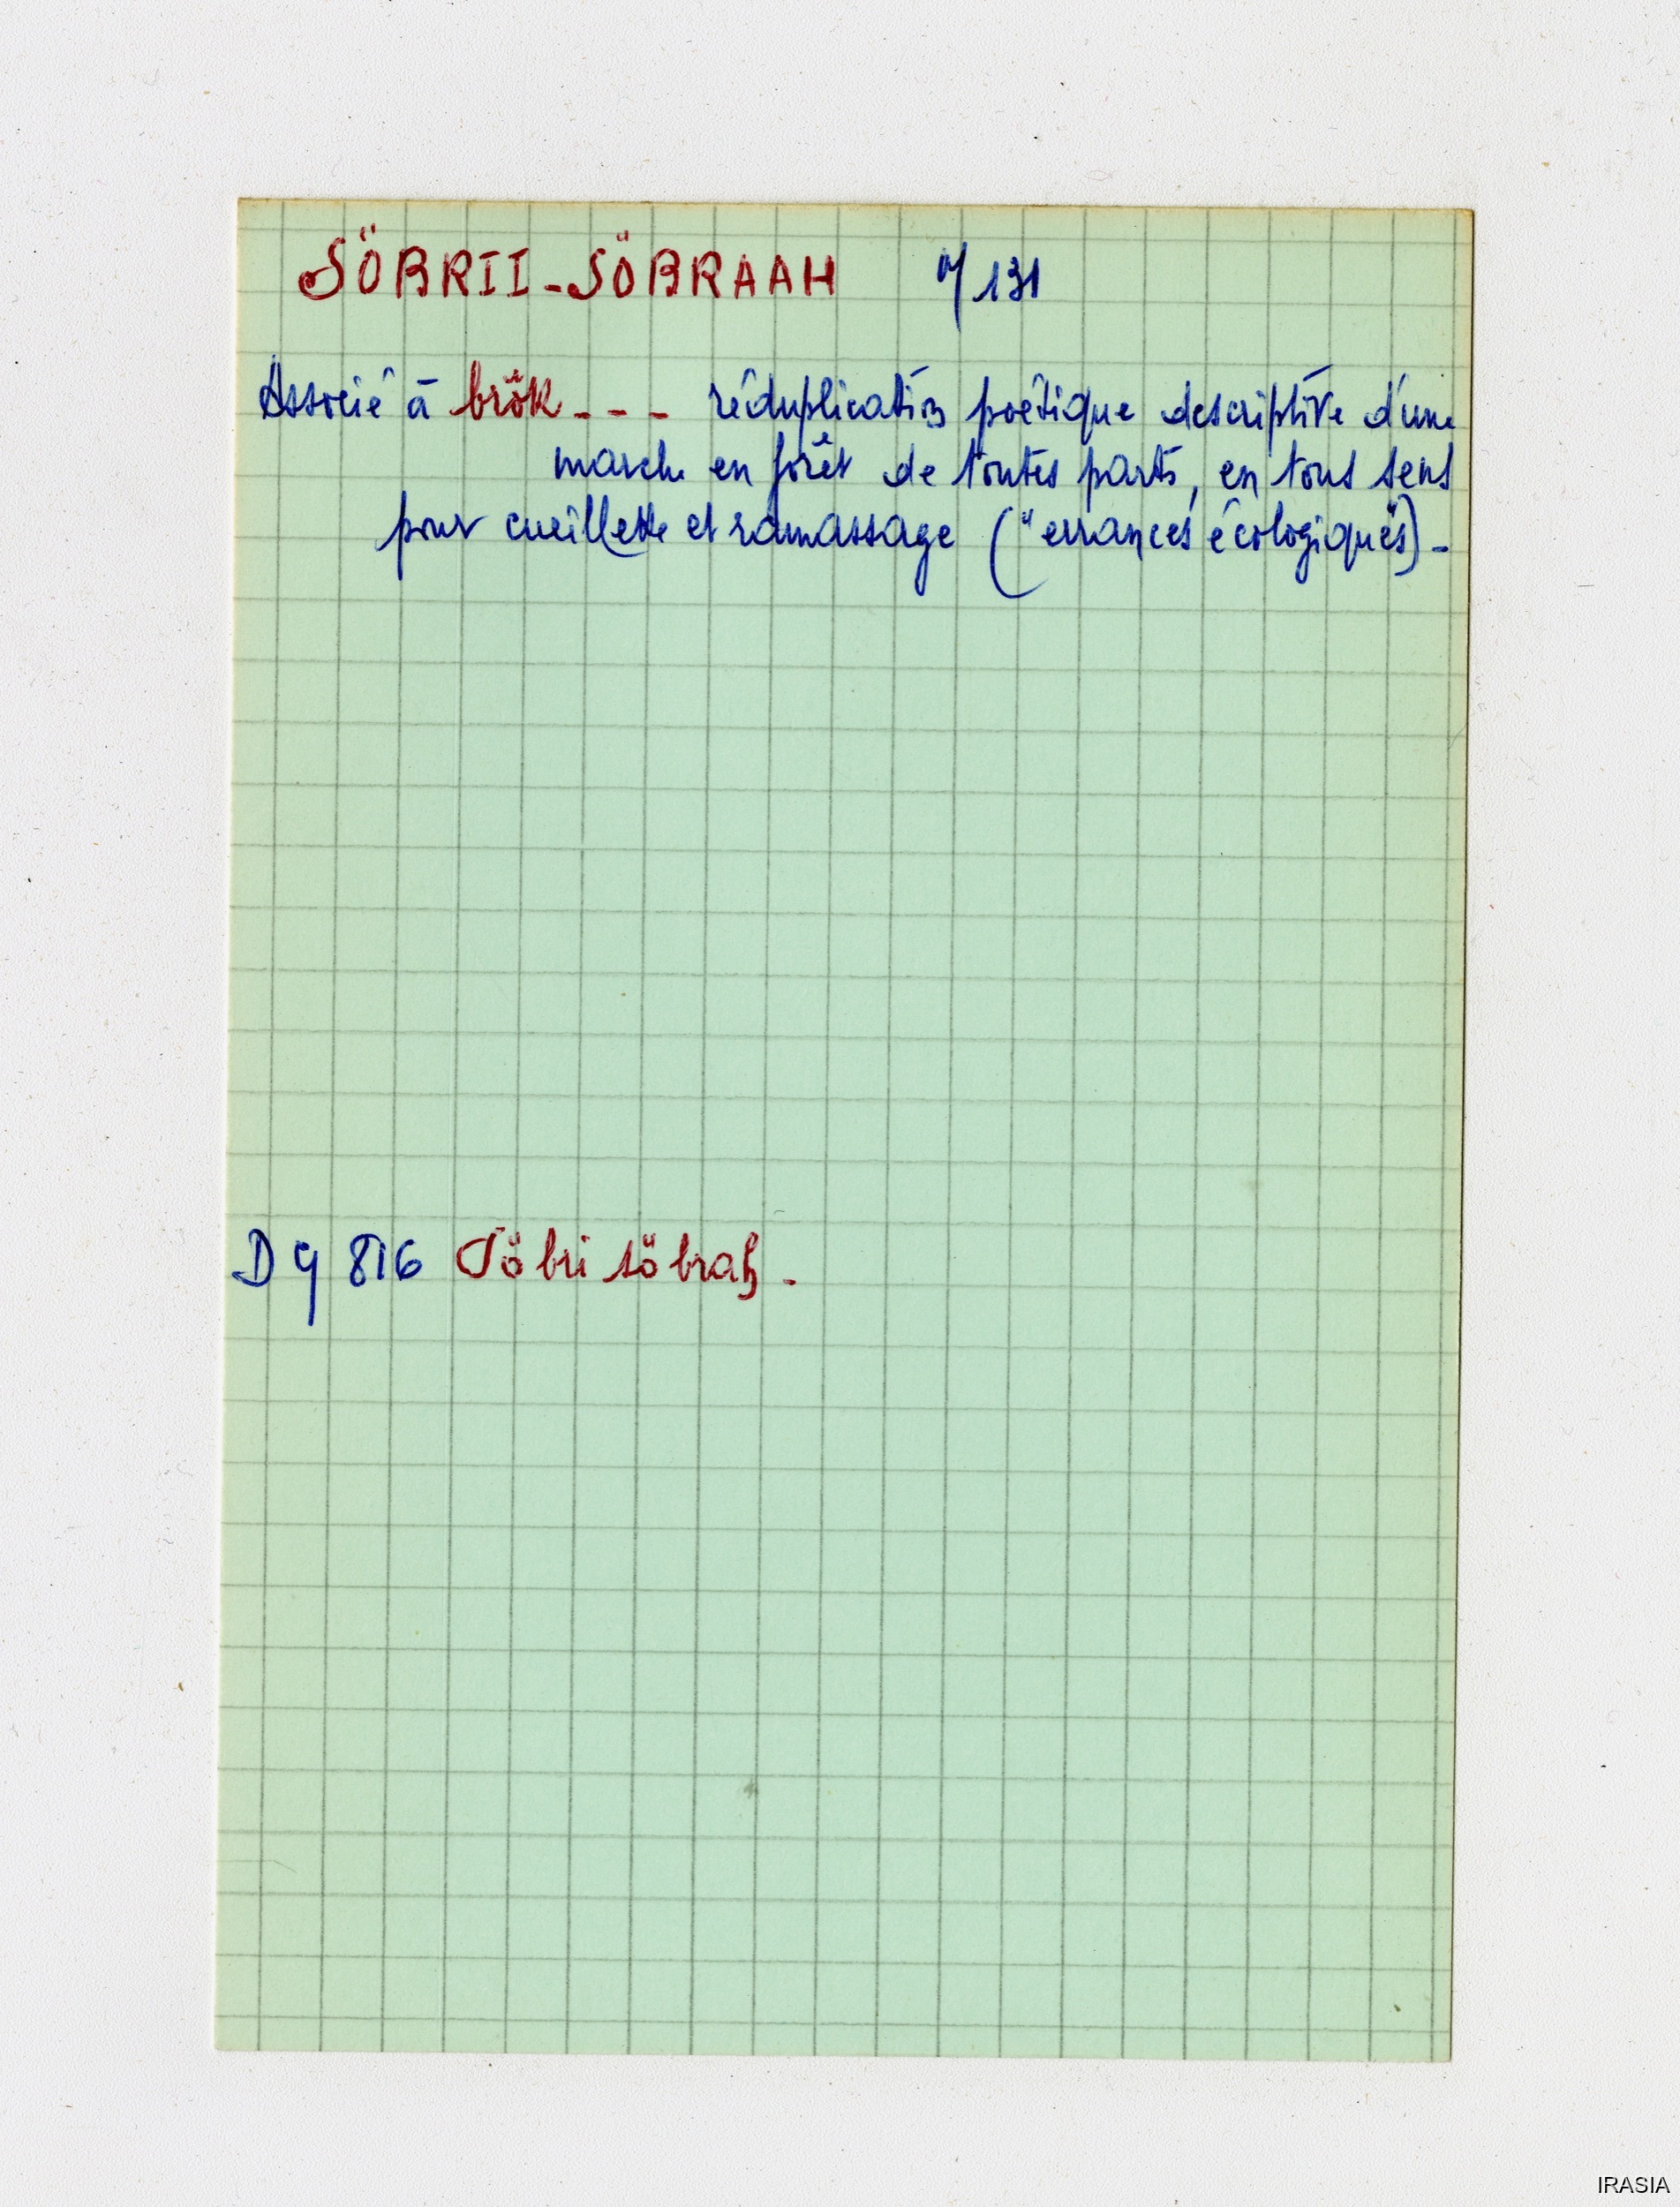 SÖBRII-SÖBRAAH 4/131
Associé à brŏk--- réduplication poétique descriptive d'une
marche en forêt de toutes parts, en tous sens
pour cueillette et ramassage ("errances écologiques") -
D 9 816 söbri söbraḥ -
IRASIA